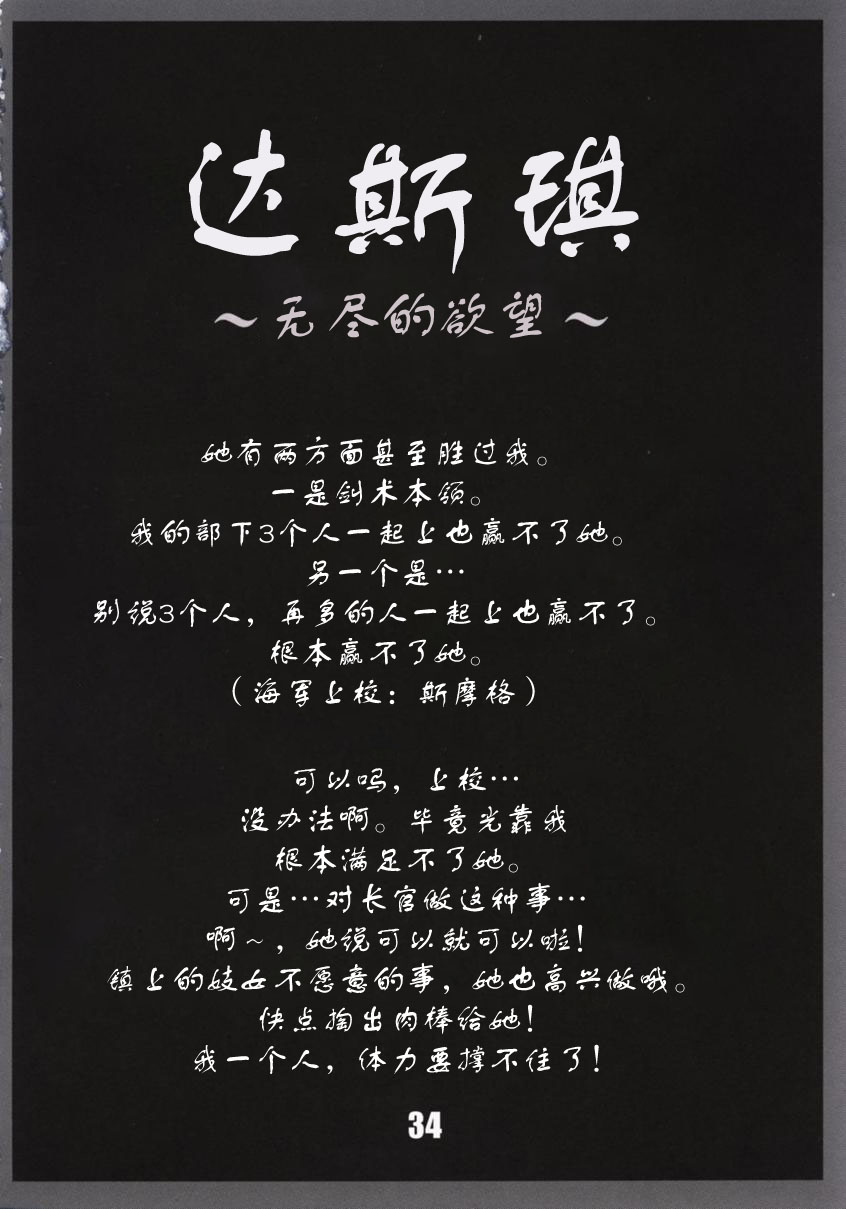 达斯琪
～无尽的欲望～
她有两方面甚至胜过我。
一是剑术本领。
我的部下3个人一起上也赢不了她。
另一个是…
别说3个人，再多的人一起上也赢不了。
根本赢不了她。
（海军上校：斯摩格）
可以吗，上校…
没办法啊。毕竟光靠我
根本满足不了她。
可是…对长官做这种事…
啊～，她说可以就可以啦！
镇上的妓女不愿意的事，她也高兴做哦。
快点掏出肉棒给她！
我一个人，体力要撑不住了！
34